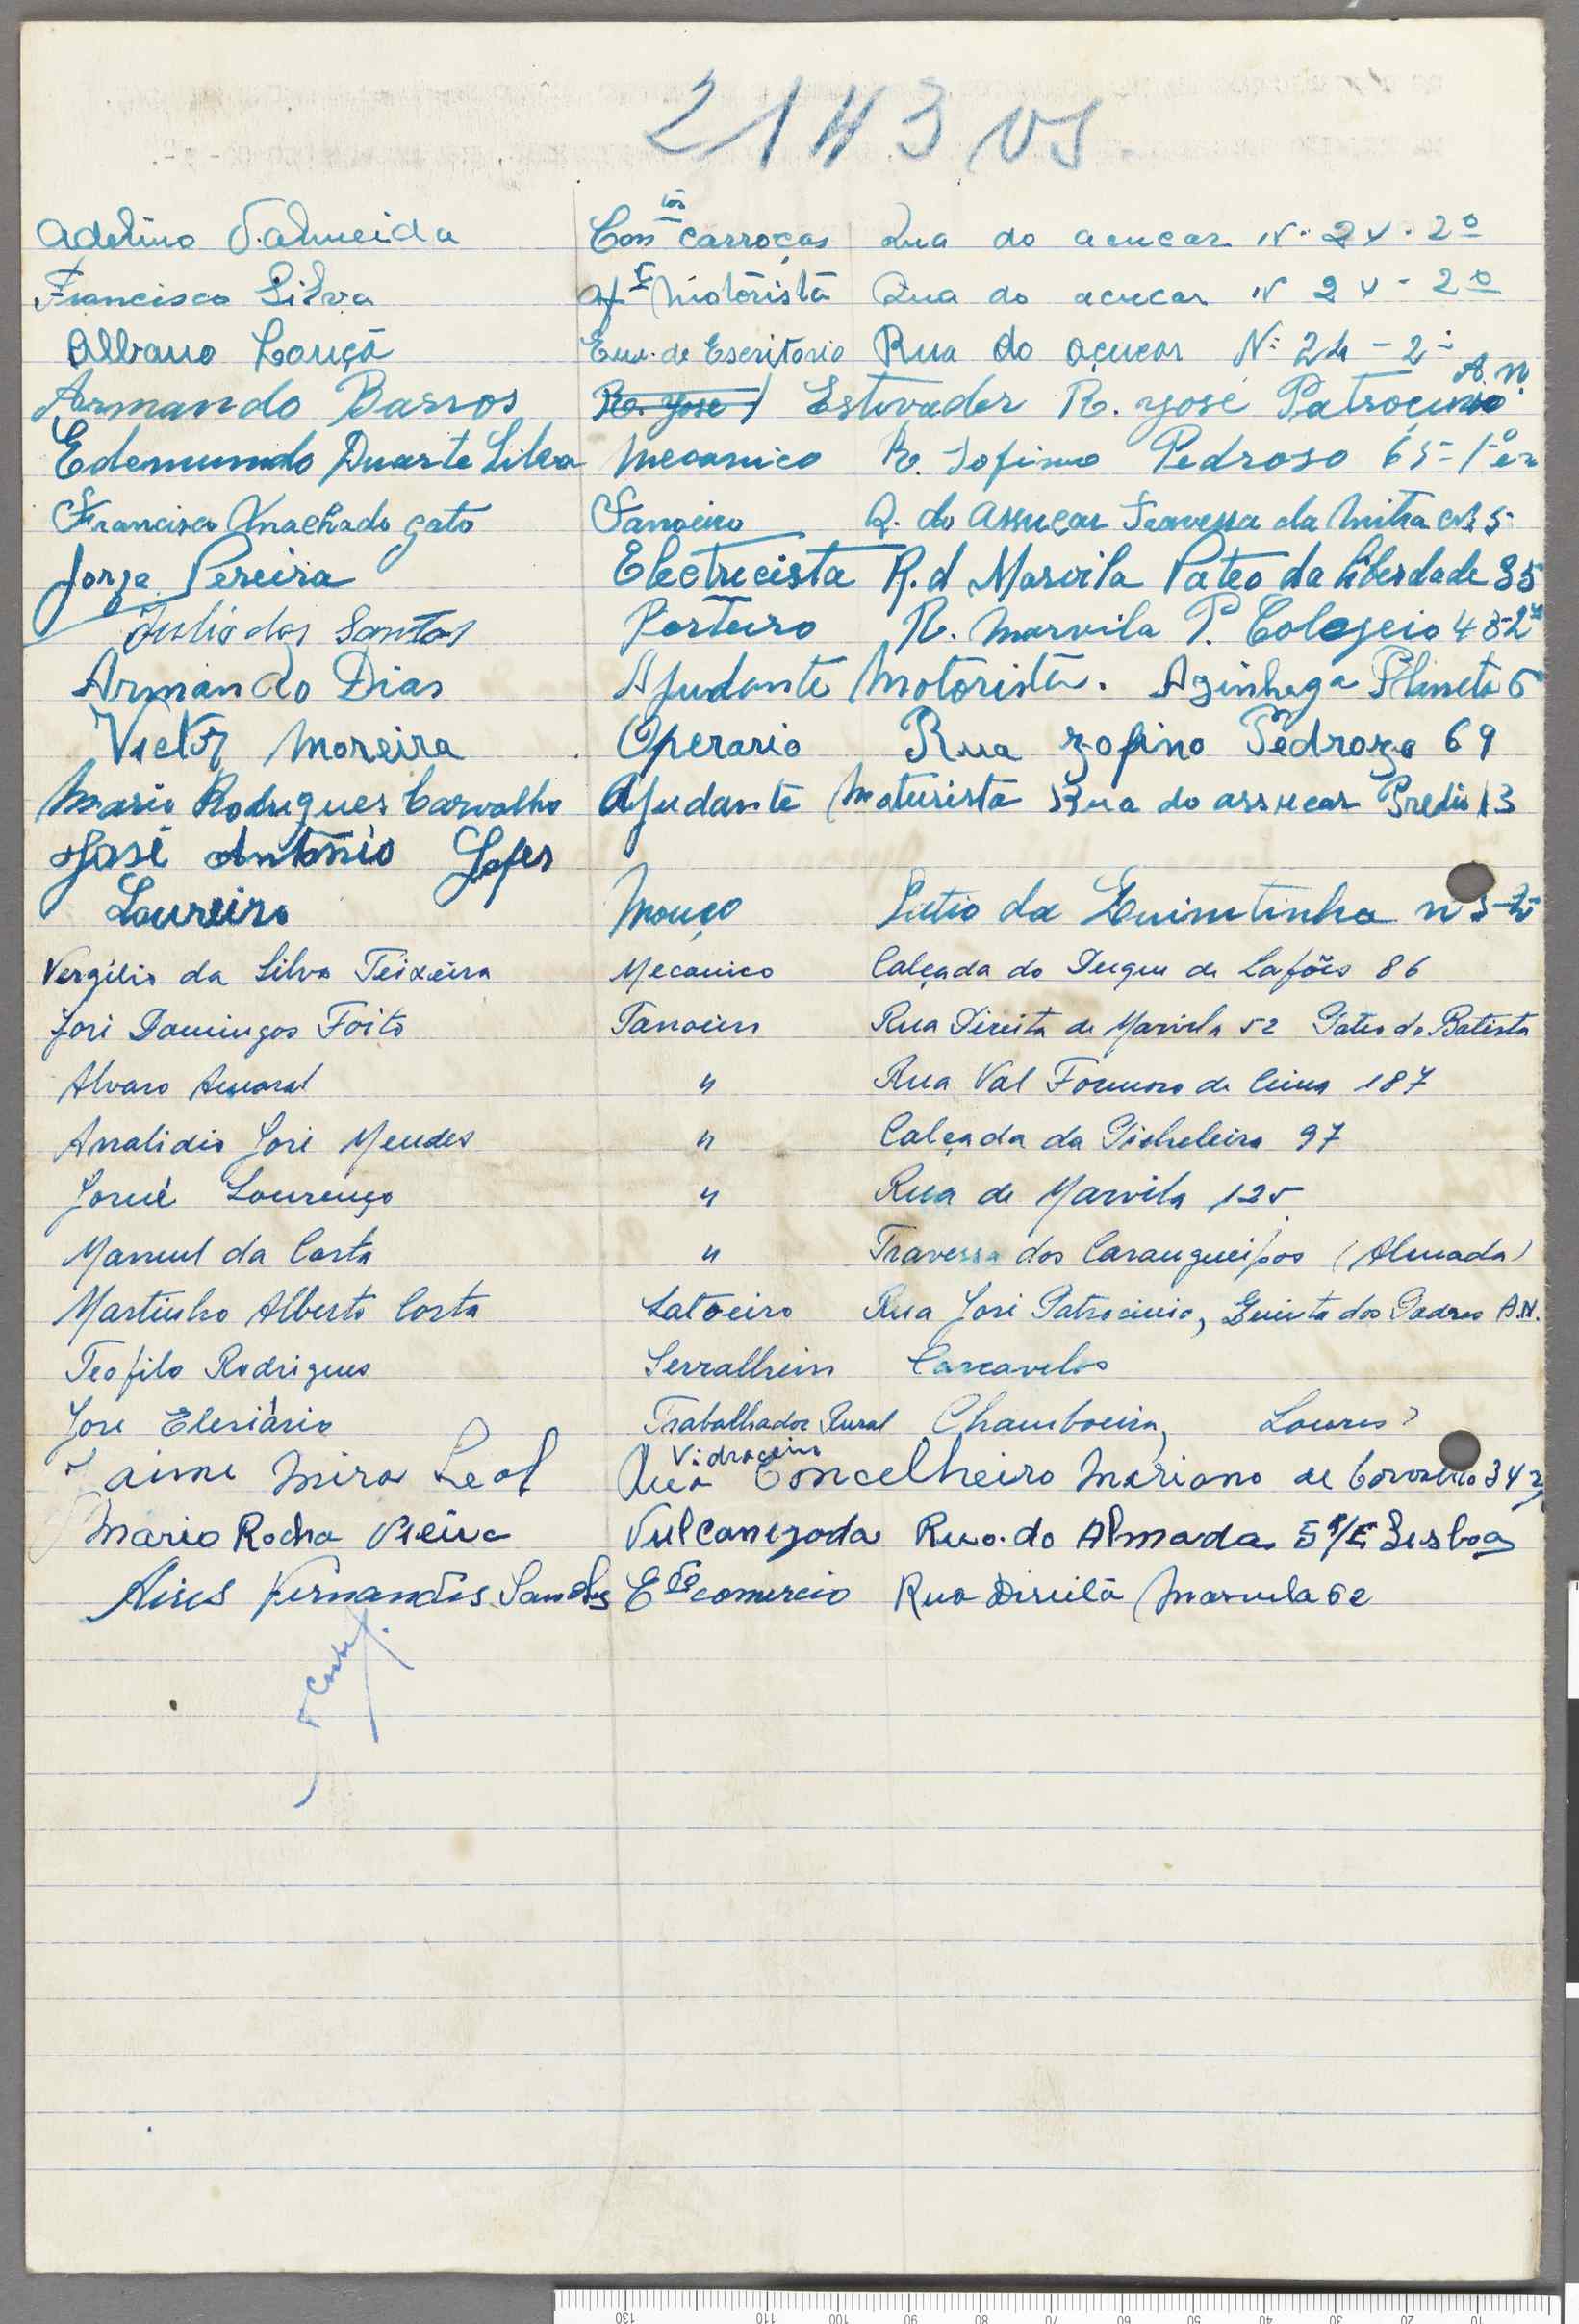 2143 VS
Adelino V. Almeida Con tor Carroças Rua do acucar N. 24. 2º
Francisco Silva Aj. Motoristã Rua do acucar N 24 - 2º
Albano Louçã Em. de Escritorio Rua do Açucar Nº 24 - 2º
Armando Barros R. José Estivador R. José Patrocinio A. N.
Edemundo Duarte Silva Mecanico R. Zofimo Pedroso 65-1º
Francisco Machado gato Tanoeiro R. do Assucar Travessa da Mitra 5
Jorge Pereira Electrecista R. d Marvila Pateo da liberdade 35
Julio dos Santos Porteiro R. Marvila P. Colegeio
Armando Dias Ajudante Motorista. Azinhaga Planeta 6
Victor Moreira Operario Rua Zofino Pedrozo 69
Mario Rodrigues Carvalho Ajudante Moturista Rua do assucar Predio 13
José António Lopes
Loureiro Mouço Patio da Quintinha nº
Vergilio da Silva Teixeira Mecanico Calçada do Duque de Lafões 86
José Domingos Foito Tanoeiro Rua Direita de Marvila 52 Pateo do Batista
Alvaro Amaral " Rua Val Formoso de Cima 187
Analidio José Mendes " Calçada da Picheleira 97
Josué Lourenço " Rua de Marvila 125
Manuel da Costa " Travessa dos Carangueijos (Almada)
Martinho Alberto Costa Latoeiro Rua José Patrocinio, Quinta dos Padres A.N.
Teofilo Rodrigues Serralheiro Carcavelos
José Elesiário Trabalhador Rural Chamboeira, Loures
Jaime Mira Leal Vidraceiro Rua Concelheiro Mariano de Carvalho 34
Mario Rocha Vieira Vulcanizada Rua do Almada 5 R/E Lisboa
Aires Fernandes Sanches E do comercio Rua Direita Marvila 62